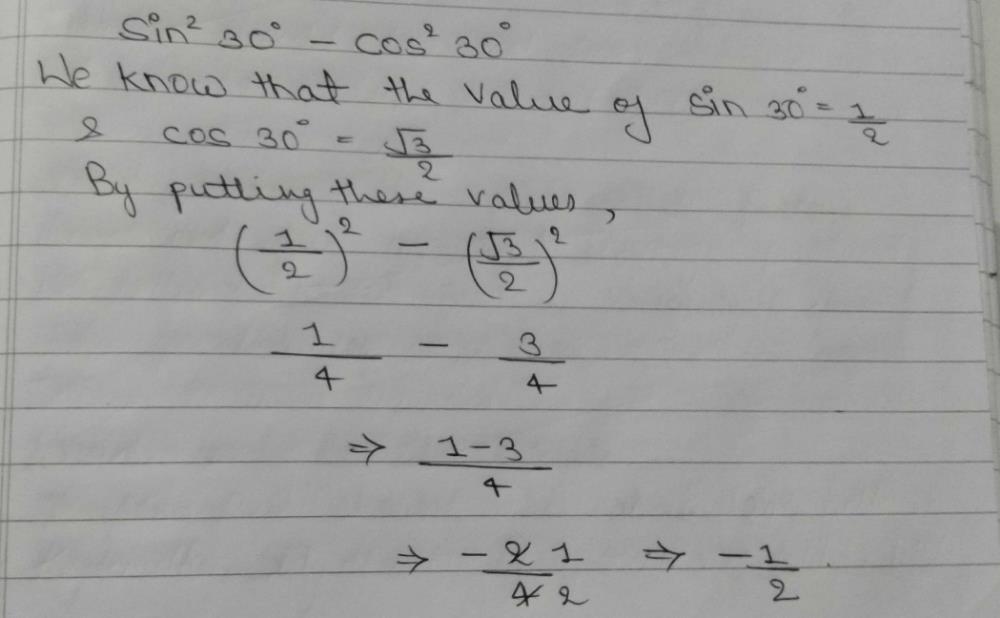 Sin² 30° - cos² 30°
We know that the value of sin 30° = 1/2
& cos 30° = √3/2
By putting these values,
(1/2)² - (√3/2)²
1/4 - 3/4
⇒ 1-3/4
⇒ -2 1/4 2 ⇒ -1/2